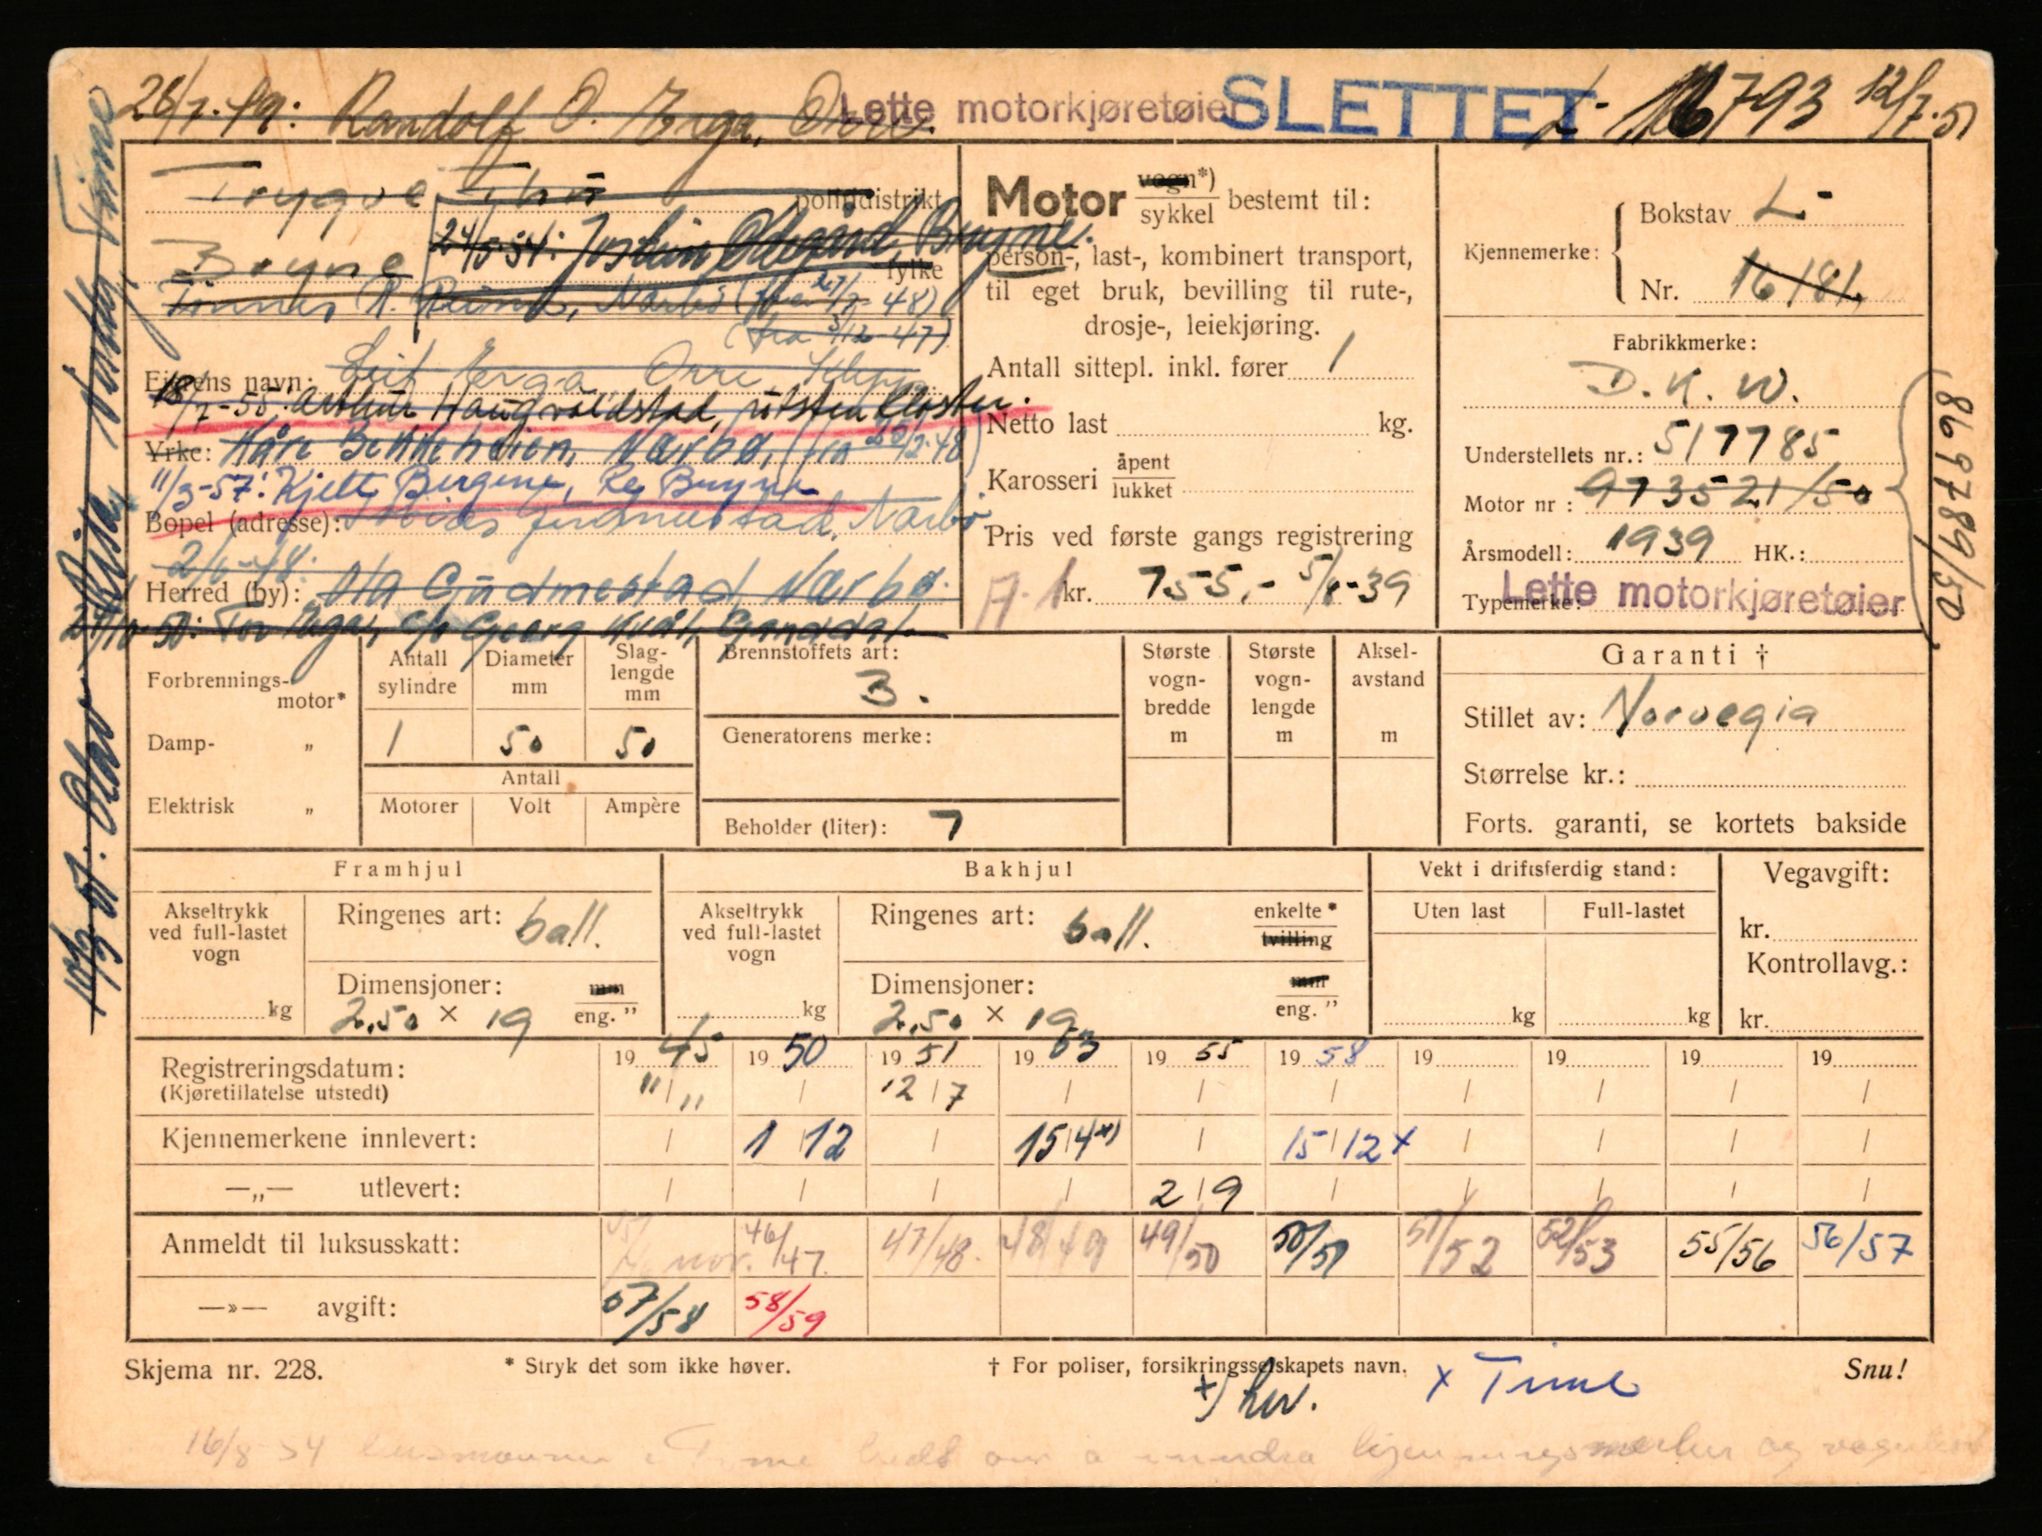 28/7-49: Randolf O. Erga, Orre.
Lette motorkjøretøier
SLETTET
L- 16793 12/7-51
Trygve
politidistrikt
24/5-54: Jostein Ødegård Bryne.
Bryne
fylke
Tønnes R. Reime, Nærbø (fra 27/7-48)
(fra 5/12-47)
Eierens navn: Leif Erga Orre, Klepp
18/7-55: Arthur Haugvaldstad, Utsten Kloster.
Yrke: Kåre Bekkeheien, Nærbø, (fra 20/12-48)
11/3-57: Kjell Bergene, Re, Bryne
Bopel (adresse): Gudmestad, Nærbø
2/6-48:
Herred (by): Ola Gudmestad, Nærbø.
Tor Erga, c/o Georg Kvål, Ganddal.
Motor vogn*)
sykkel bestemt til:
person-, last-, kombinert transport,
til eget bruk, bevilling til rute-,
drosje-, leiekjøring.
Antall sittepl. inkl. fører 1
Netto last kg.
Karosseri åpent
lukket
Pris ved første gangs registrering
A.1 kr. 755,- 5/8-39
Kjennemerke: Bokstav L-
Nr. 16181
Fabrikkmerke:
D.K.W.
Understellets nr.: 517785
Motor nr: 973521/50
869789/50
Årsmodell: 1939 HK.:
Typemerke: Lette motorkjøretøier
Forbrennings-
motor*
Damp- „
Elektrisk „
Antall sylindre
Diameter mm
Slag-lengde mm
1 50 50
Antall
Motorer Volt Ampère
Brennstoffets art:
B.
Generatorens merke:
Beholder (liter): 7
Største vogn-bredde m
Største vogn-lengde m
Aksel-avstand m
Garanti †
Stillet av: Norvegia
Størrelse kr.:
Forts. garanti, se kortets bakside
Framhjul
Akseltrykk ved full-lastet vogn
kg
Ringenes art: ball.
Dimensjoner: mm
2.50 × 19 eng."
Bakhjul
Akseltrykk ved full-lastet vogn
kg
Ringenes art: ball. enkelte*
tvilling
Dimensjoner: mm
2.50 × 19 eng."
Vekt i driftsferdig stand:
Uten last Full-lastet
kg kg
Vegavgift:
kr.
Kontrollavg.:
kr.
19 45 19 50 19 51 19 53 19 55 19 58 19 19 19 19
Registreringsdatum: 11/11 / 12/7 / / / / / / /
(Kjøretillatelse utstedt)
Kjennemerkene innlevert: / 1/12 / 15/4*) / 15/12 x / / / /
—„— utlevert: / / / / 2/9 / / / / /
Anmeldt til luksusskatt: nov. 46/47. 47/48. 48/49 49/50 50/51 51/52 52/53 55/56 56/57
—»— avgift: 57/58 58/59
Skjema nr. 228.
* Stryk det som ikke høver.
† For poliser, forsikringsselskapets navn.
Snu!
x Time
16/8-54 lensmannen i Time bedt om å inndra kjenningsmerker og vognkort